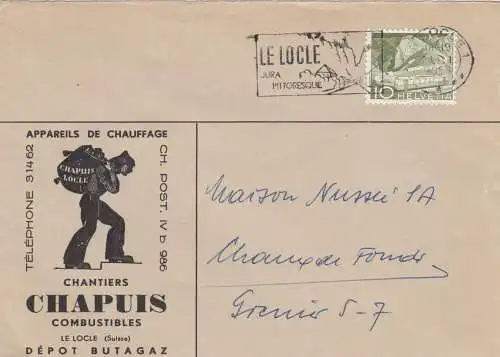 LE LOCLE
JURA
PITTORESQUE
10 HELVETIA
APPAREILS DE CHAUFFAGE
TÉLÉPHONE 31462
CHAPUIS
LOCLE
CH. POST. IV b 986
CHANTIERS
CHAPUIS
COMBUSTIBLES
LE LOCLE (Suisse)
DÉPOT BUTAGAZ
Maison Nusslé SA
Chaux de Fonds
Grenier 5-7